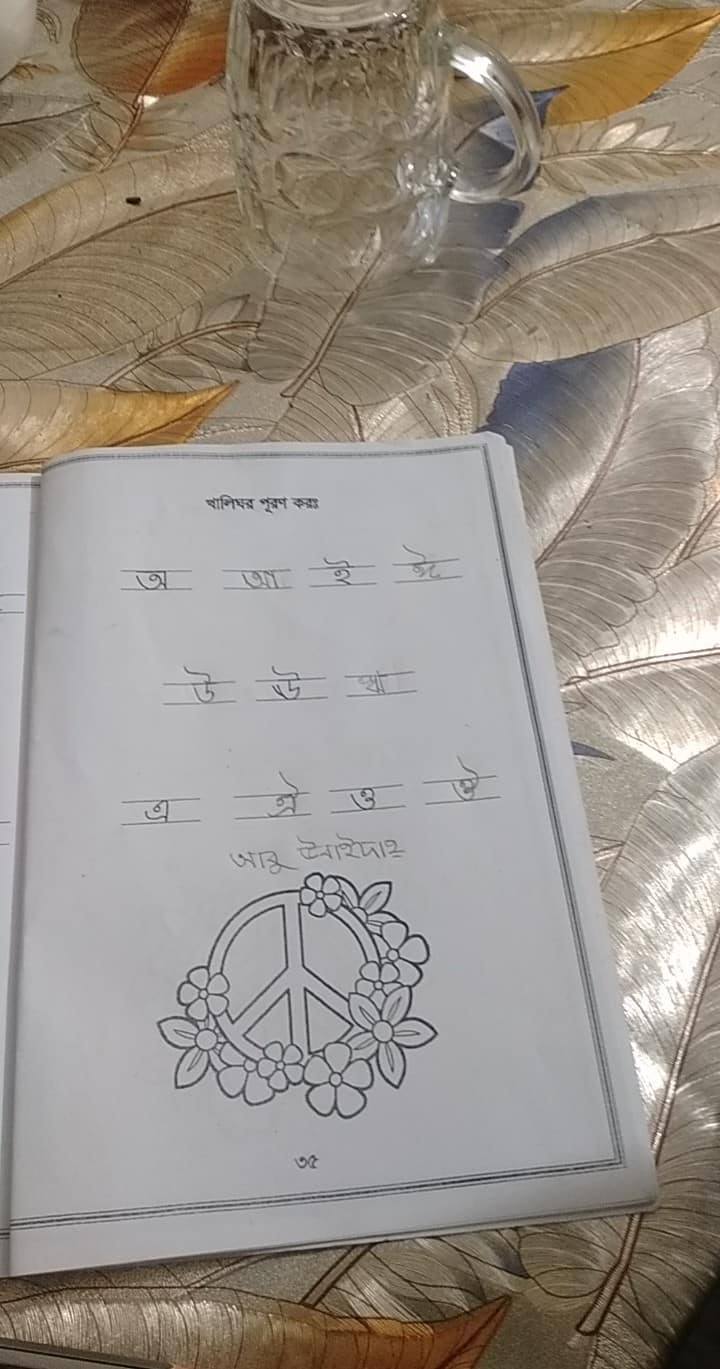 খালিঘর পূরণ করঃ
অ আ ই ঈ
উ ঊ ঋ
এ ঐ ও ঔ
আবু
৩৫